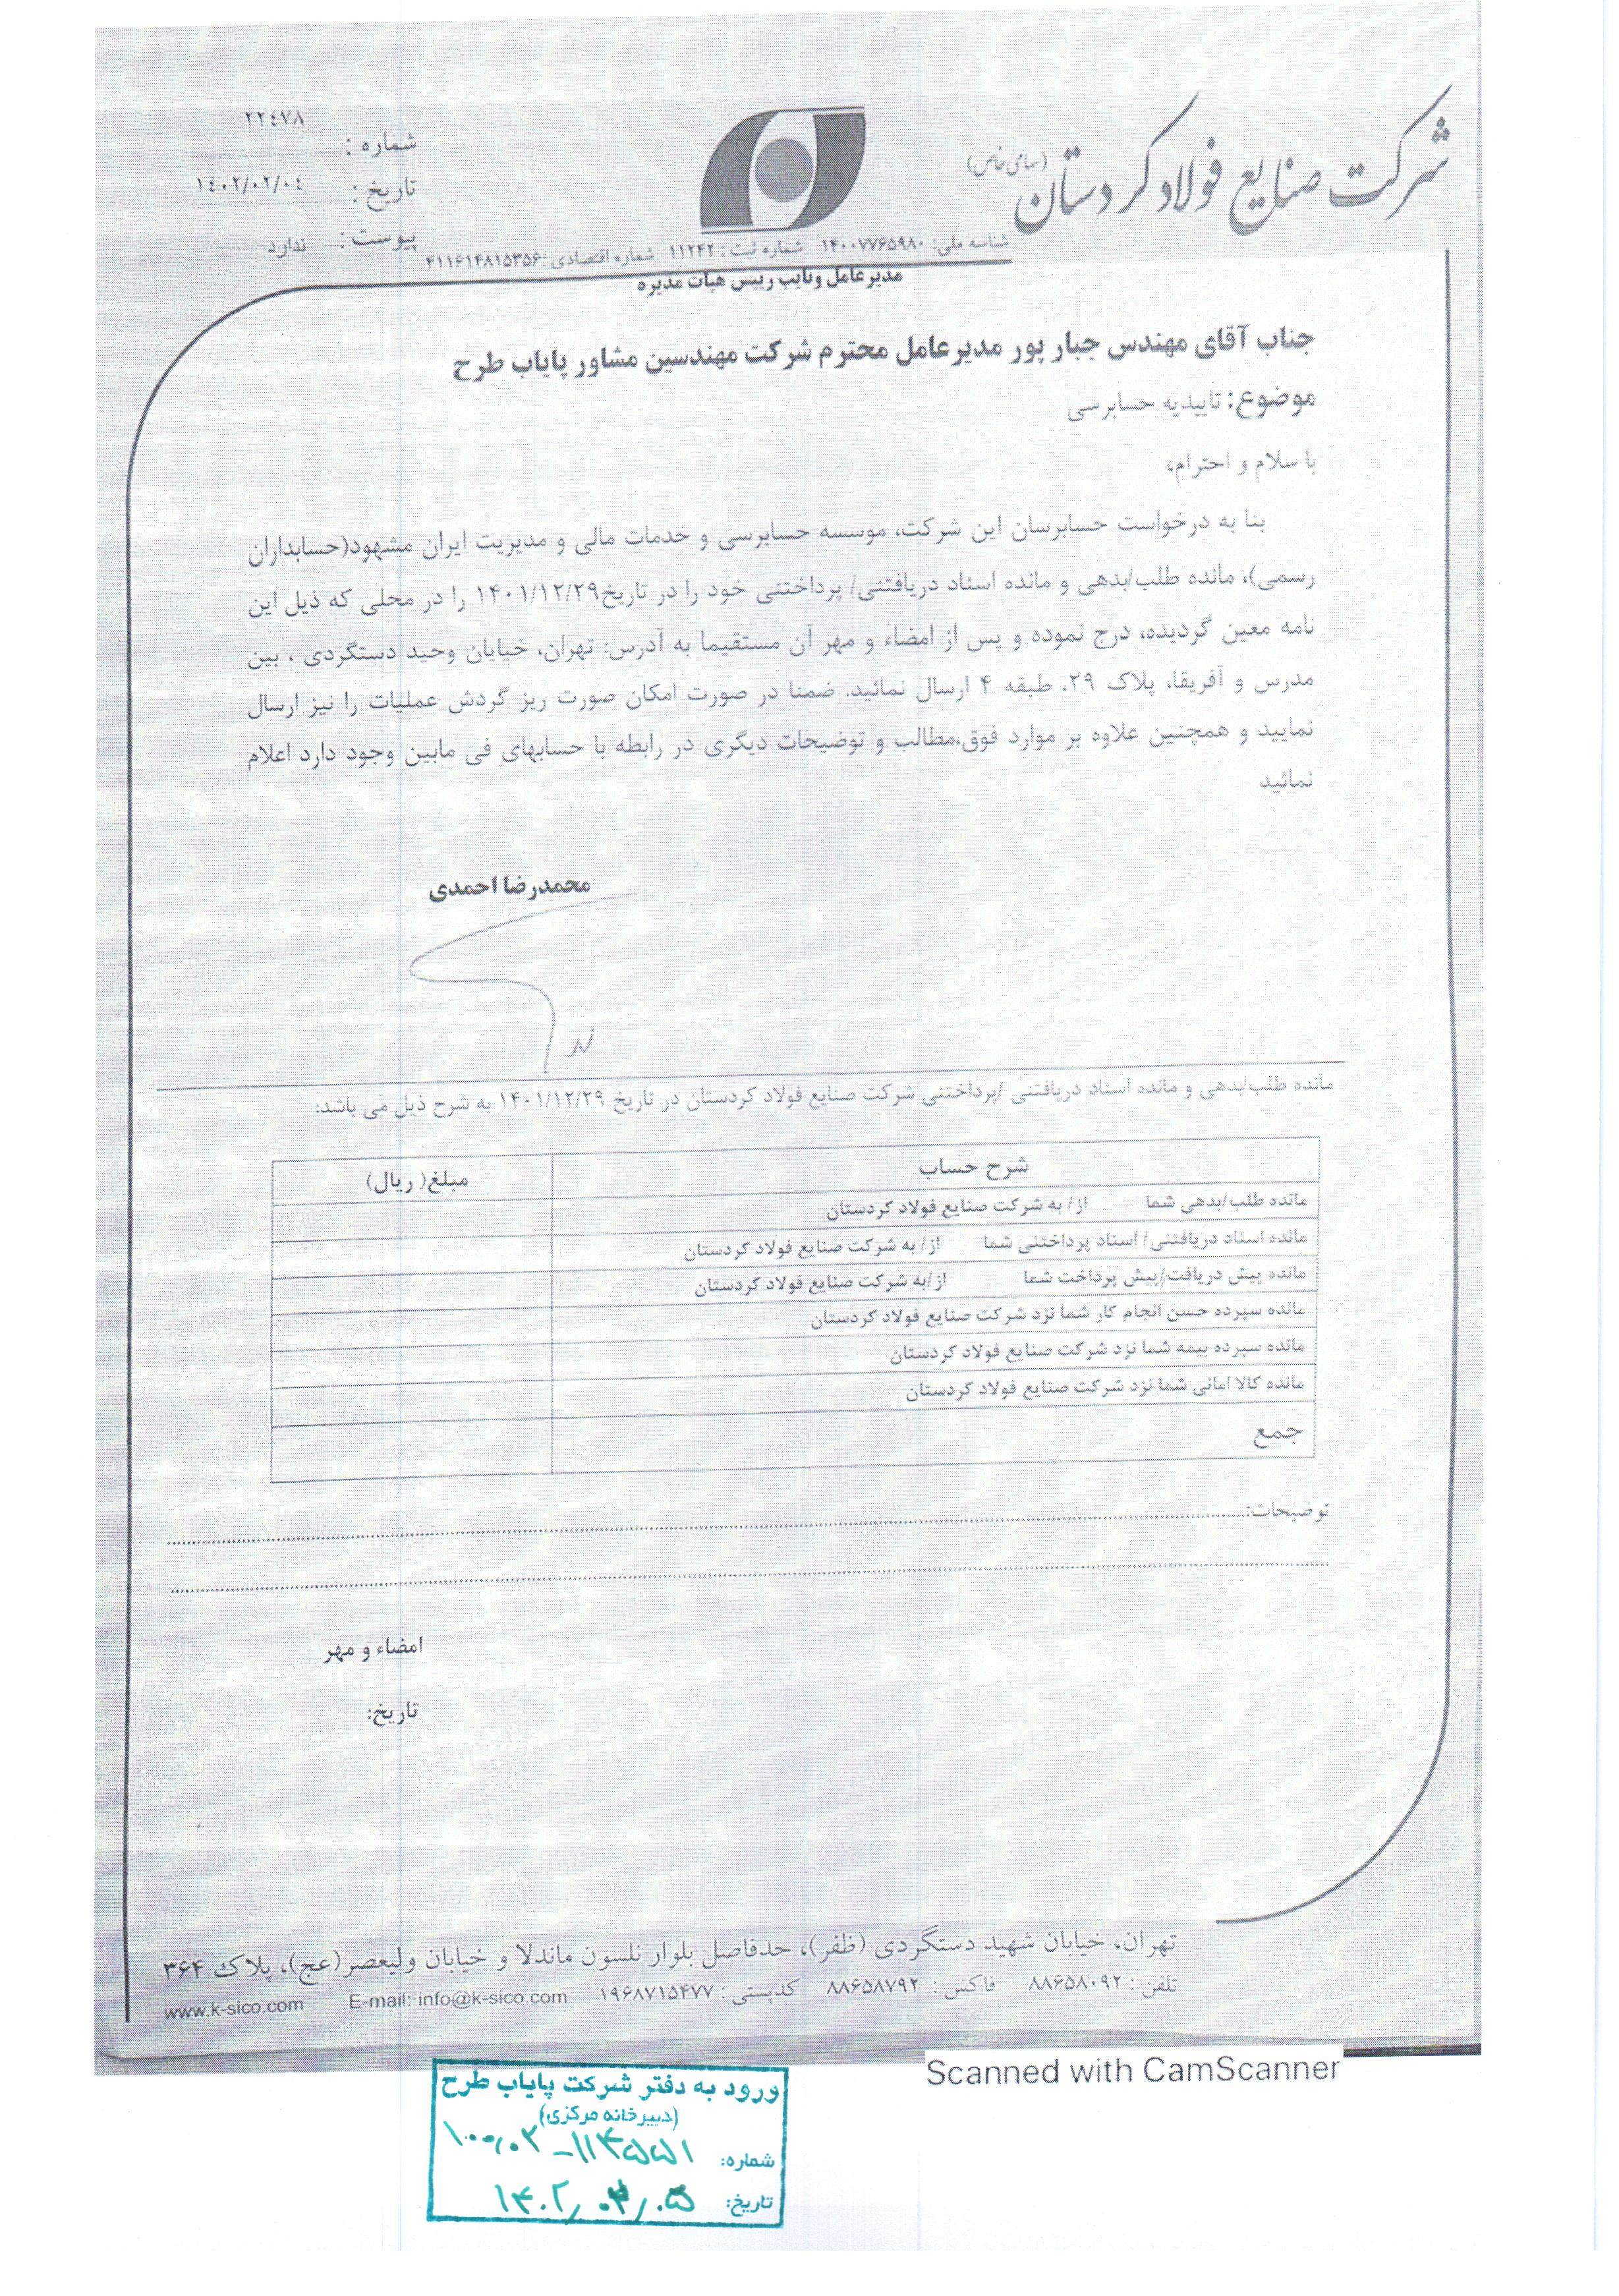 شرکت صنایع فولاد کردستان (سهامی خاص)
شماره : ۲۲٤۷۸
تاریخ : ۱٤۰۲/۰۲/۰٤
پیوست : ندارد
شناسه ملی: ۱۴۰۰۷۷۶۵۹۸۰ شماره ثبت : ۱۱۲۴۲ شماره اقتصادی : ۴۱۱۶۱۴۸۱۵۳۵۶
مدیرعامل ونایب رییس هیات مدیره
جناب آقای مهندس جبار پور مدیرعامل محترم شرکت مهندسین مشاور پایاب طرح
موضوع: تاییدیه حسابرسی
با سلام و احترام،
بنا به درخواست حسابرسان این شرکت، موسسه حسابرسی و خدمات مالی و مدیریت ایران مشهود(حسابداران
رسمی)، مانده طلب/بدهی و مانده اسناد دریافتنی/ پرداختنی خود را در تاریخ۱۴۰۱/۱۲/۲۹ را در محلی که ذیل این
نامه معین گردیده، درج نموده و پس از امضاء و مهر آن مستقیما به آدرس: تهران، خیایان وحید دستگردی ، بین
مدرس و آفریقا، پلاک ۲۹، طبقه ۴ ارسال نمائید. ضمنا در صورت امکان صورت ریز گردش عملیات را نیز ارسال
نمایید و همچنین علاوه بر موارد فوق،مطالب و توضیحات دیگری در رابطه با حسابهای فی مابین وجود دارد اعلام
نمائید
محمدرضا احمدی
مانده طلب/بدهی و مانده اسناد دریافتنی /پرداختنی شرکت صنایع فولاد کردستان در تاریخ ۱۴۰۱/۱۲/۲۹ به شرح ذیل می باشد:
شرح حساب مبلغ( ریال)
مانده طلب/بدهی شما از/ به شرکت صنایع فولاد کردستان
مانده اسناد دریافتنی/ اسناد پرداختنی شما از/ به شرکت صنایع فولاد کردستان
مانده پیش دریافت/پیش پرداخت شما از/به شرکت صنایع فولاد کردستان
مانده سپرده حسن انجام کار شما نزد شرکت صنایع فولاد کردستان
مانده سپرده بیمه شما نزد شرکت صنایع فولاد کردستان
مانده کالا امانی شما نزد شرکت صنایع فولاد کردستان
جمع
توضیحات:
امضاء و مهر
تاریخ:
تهران، خیابان شهید دستگردی (ظفر)، حدفاصل بلوار نلسون ماندلا و خیابان ولیعصر(عج)، پلاک ۳۶۴
تلفن : ۸۸۶۵۸۰۹۲ فاکس : ۸۸۶۵۸۷۹۲ کدپستی : ۱۹۶۸۷۱۵۴۷۷ E-mail: info@k-sico.com www.k-sico.com
Scanned with CamScanner
ورود به دفتر شرکت پایاب طرح
(دبیرخانه مرکزی)
شماره:
تاریخ: